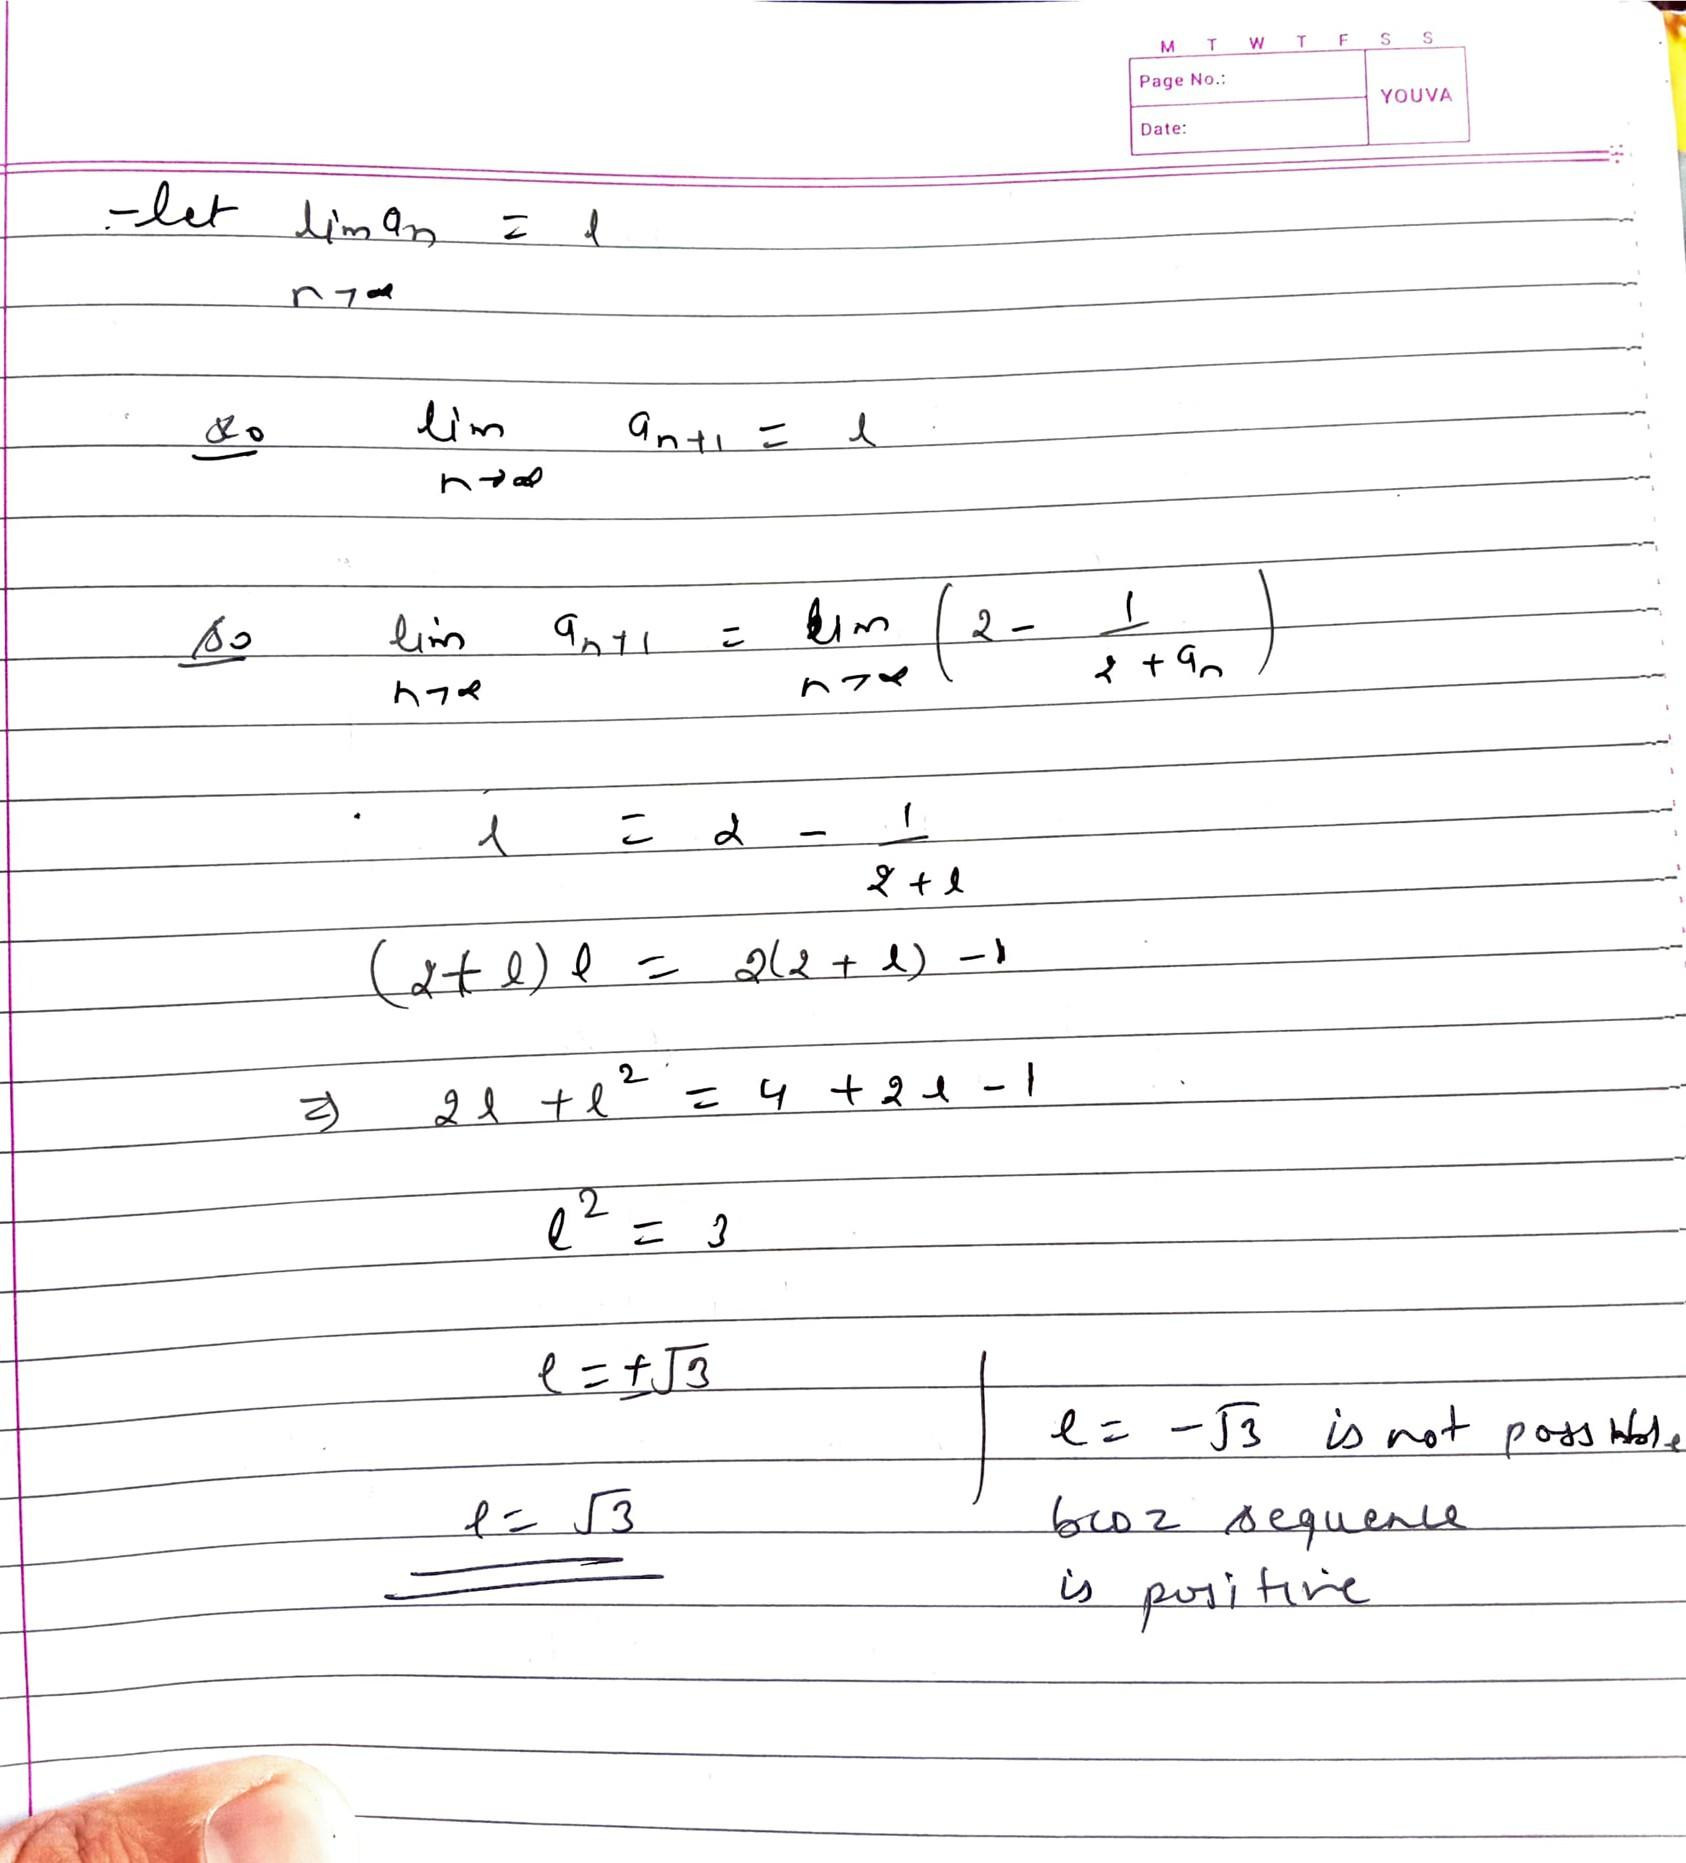 M T W T F S S
Page No.:
YOUVA
Date:
- let lim an = l
n→∞
so lim an+1 = l
n→∞
so lim an+1 = lim ( 2 - 1
n→∞ n→∞ 2 + an )
l = 2 - 1
2 + l
(2+l) l = 2(2 + l) - 1
⇒ 2l + l² = 4 + 2l - 1
l² = 3
l = ±√3
l = -√3 is not possible
l = √3
bcoz sequence
is positive